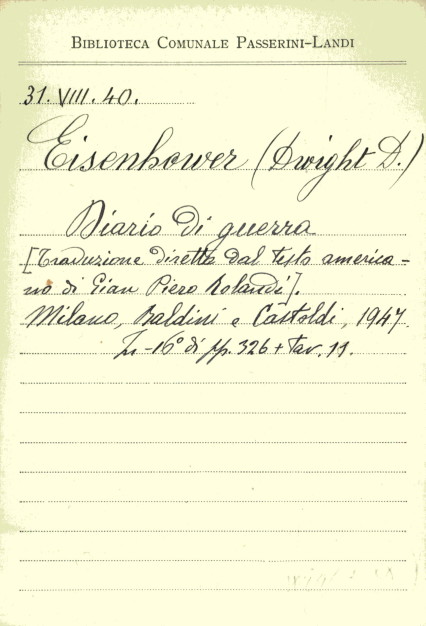 BIBLIOTECA COMUNALE PASSERINI-LANDI
31. VIII. 40.
Eisenhower (Dwight D.)
Diario di guerra
[Traduzione diretta dal testo america-
no di Gian Piero Rolandi].
Milano, Baldini e Castoldi, 1947.
In-16° di pp. 326 + tav. 11.